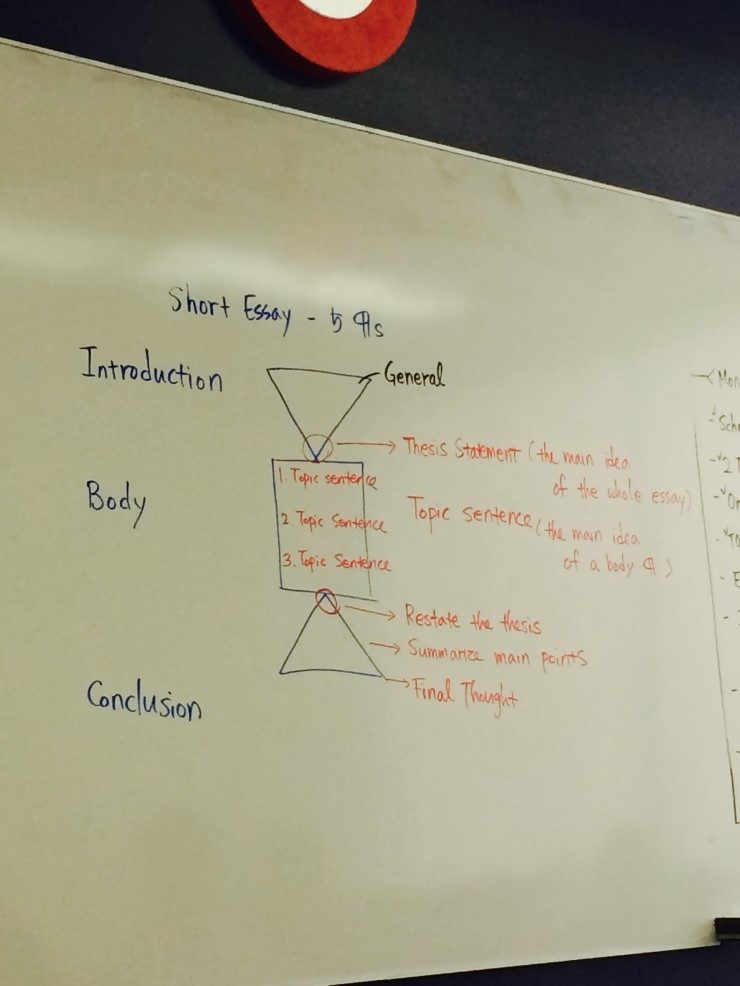 Short Essay - 5 ¶s
Introduction
General
Thesis Statement (the main idea
of the whole essay)
Body
1. Topic sentence
2. Topic Sentence
3. Topic Sentence
Topic sentence (the main idea
of a body ¶)
Restate the thesis
Summarize main points
Final Thought
Conclusion
Mon
Sch
2